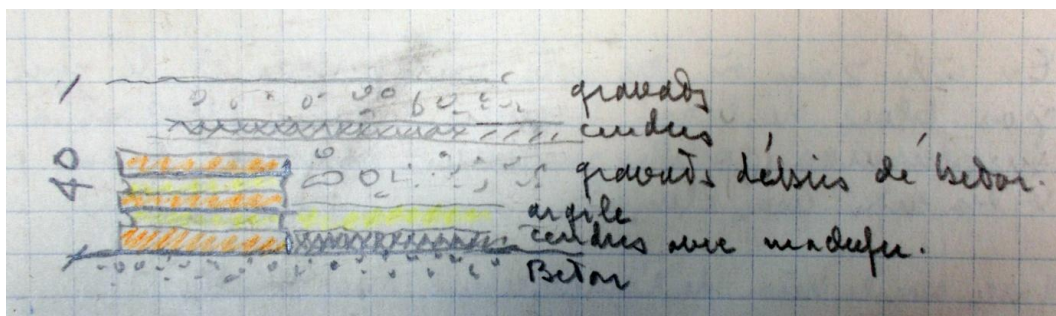 40
gravats
cendres
gravats débris de beton.
argile
cendres avec
Beton